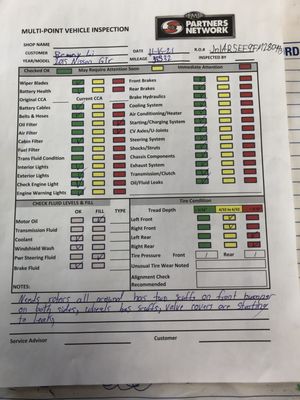 MULTI-POINT VEHICLE INSPECTION
PARTNERS NETWORK
SHOP NAME
CUSTOMER DATE R.O.#
YEAR/MODEL Nissan GTR MILEAGE INSPECTED BY
Checked OK May Require Attention Soon Immediate Attention
Wiper Blades Front Brakes
Battery Health Rear Brakes
Original CCA Current CCA Brake Hydraulics
Battery Cables Cooling System
Belts & Hoses Air Conditioning/Heater
Oil Filter Starting/Charging System
Air Filter CV Axles/U-Joints
Cabin Filter Steering System
Fuel Filter Shocks/Struts
Trans Fluid Condition Chassis Components
Interior Lights Exhaust System
Exterior Lights Transmission/Clutch
Check Engine Light Oil/Fluid Leaks
Engine Warning Lights
CHECK FLUID LEVELS & FILL Tire Condition
OK FILL TYPE Tread Depth
Motor Oil Left Front
Transmission Fluid Right Front
Coolant Left Rear
Windshield Wash Right Rear
Pwr Steering Fluid Tire Pressure Front / Rear /
Brake Fluid Unusual Tire Wear Noted
Alignment Check
Recommended
NOTES:
Needs rotors all around has two scuffs on front bumper
on both sides, wheels has scuffs, valve covers are starting
to leak
Service Advisor Customer